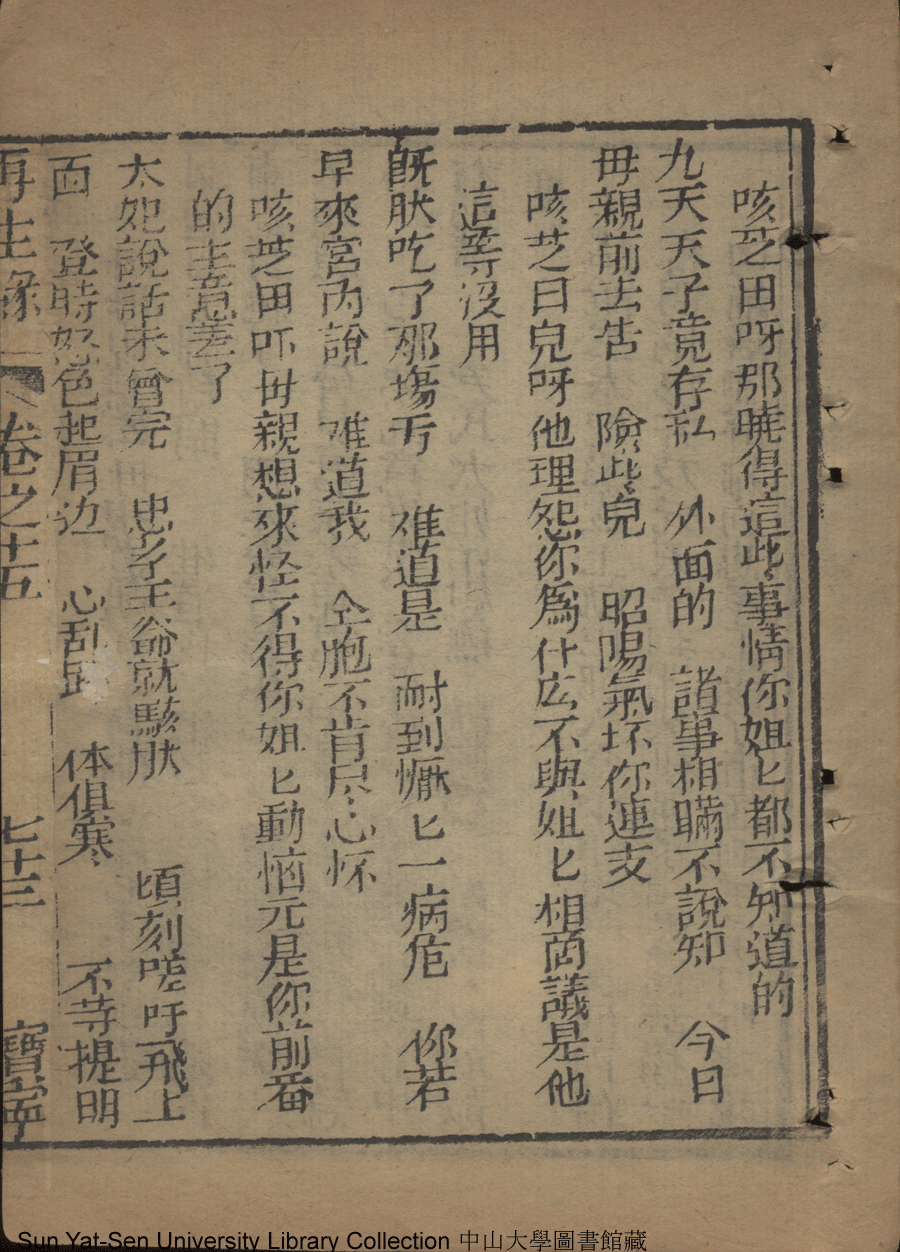 咳芝田呀那曉得這此事情你姐匕都不知道的
九天天子竟存私　外面的　諸事相瞞不說知　今日
母親前去告　險此兒　昭陽氣坏你連支
咳芝田兒呀他理怨你為什広不與姐匕相啇議是他
這等沒用
既肰吃了那塲亐　难道是　耐到懨匕一病危　你若
早來宮內說　难道我　仝胞不肯尽心怀
咳芝田吓母親想來怪不得你姐匕動惱元是你前番
的主意差了
太妃說話未曾完　忠孝王爺就駭肰　頃刻嗟吁飛上
面　登時怒色起眉边　心刮　体俱寒　不等提明
再生緣　卷之十五　七十三　寶寧
Sun Yat-Sen University Library Collection 中山大學圖書館藏